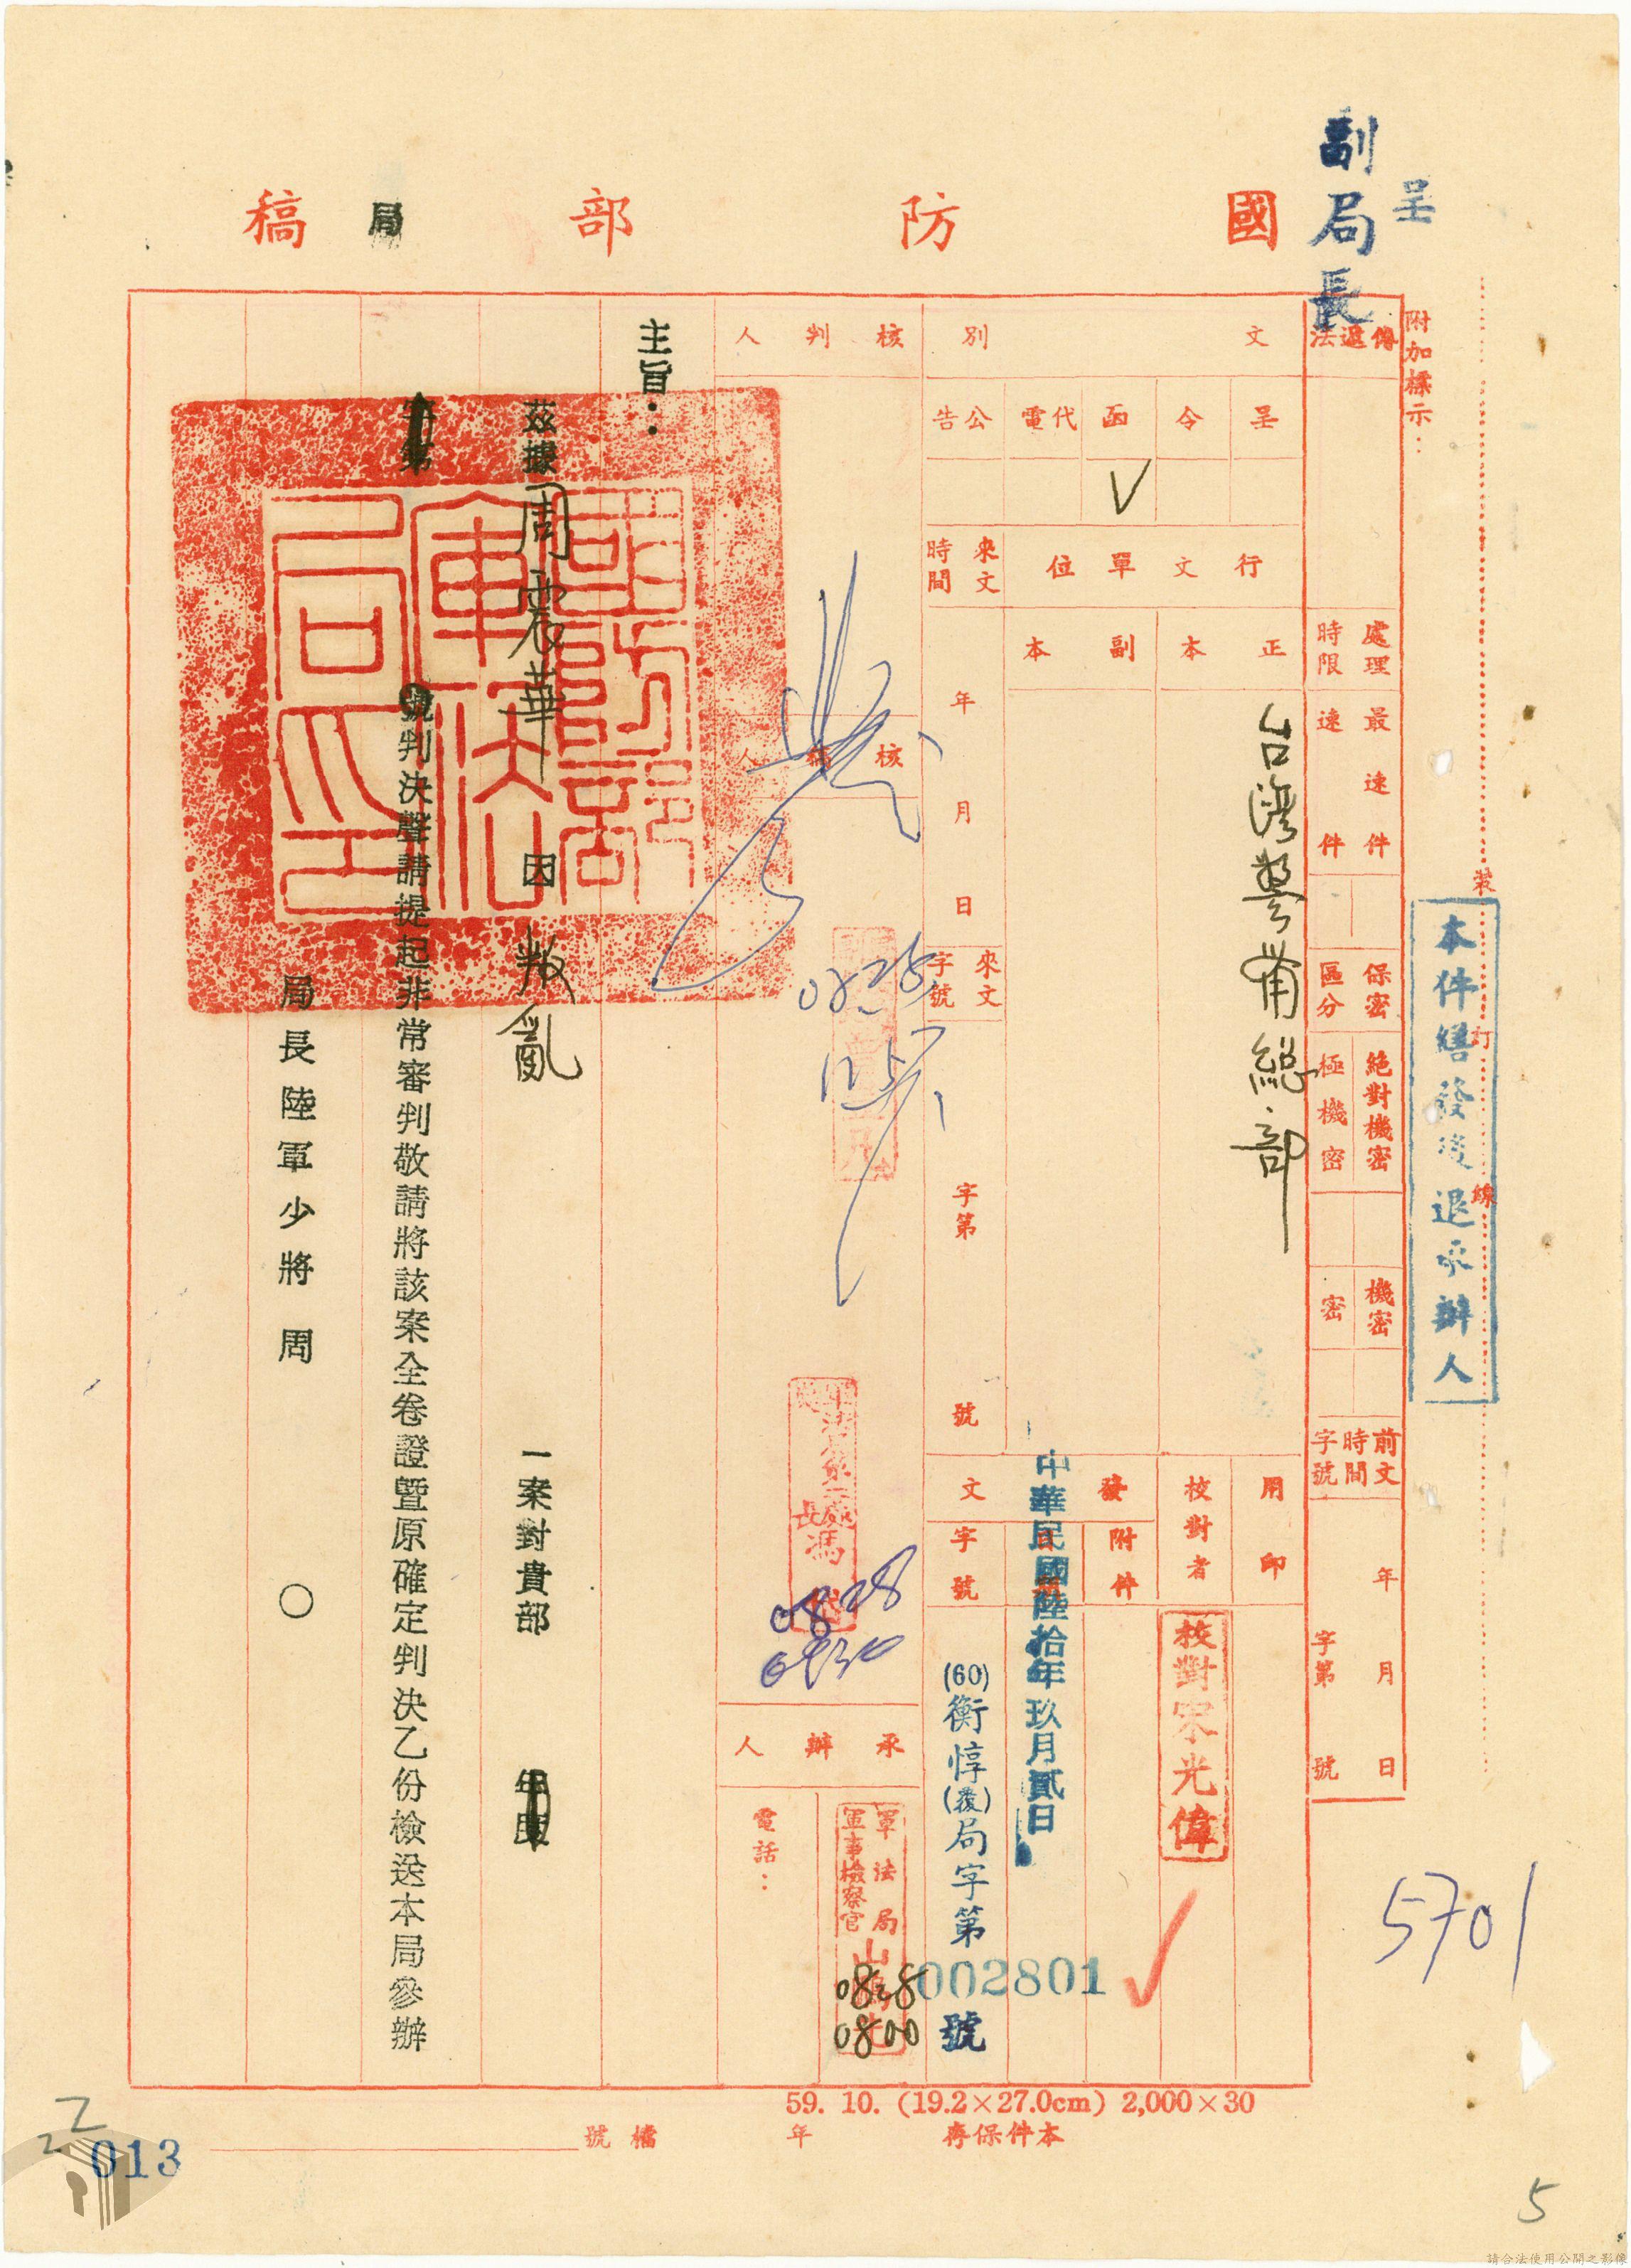 呈
副局長
國防部局稿
附加標示：
傳遞法
處理時限
最速件
速件
保密區分
絕對機密
極機密
機密
密
前文時間字號
年月日
字第號
裝訂線
本件繕發後退承辦人
文別
呈
令
函
代電
公告
V
行文單位
正本
副本
台灣警備總部
來文時間
年月日
來文字號
字第號
用印
校對者
校對宋光偉
發文
附件
字號
中華民國陸拾年玖月貳日
(60)衡惇(覆)局字第002801號
核判人
核稿人
0828
承辦人
電話：
軍法局
軍事檢察官
0828
0800
國防部軍法局之印
主旨：
茲據周震華因叛亂一案對貴部
號判決聲請提起非常審判敬請將該案全卷證暨原確定判決乙份檢送本局參辦
局長陸軍少將周○
59. 10. (19.2×27.0cm) 2,000×30
本件保存年
檔號
5701
013
5
請合法使用公開之影像